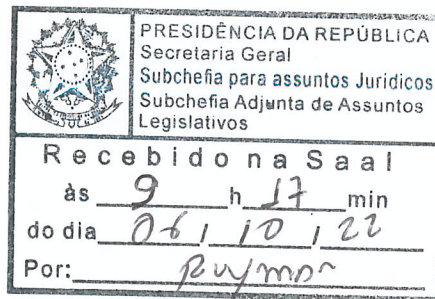 PRESIDÊNCIA DA REPÚBLICA
Secretaria Geral
Subchefia para assuntos Juridicos
Subchefia Adjunta de Assuntos
Legislativos
Recebido na Saal
às 9 h 17 min
do dia 06 / 10 / 22
Por: